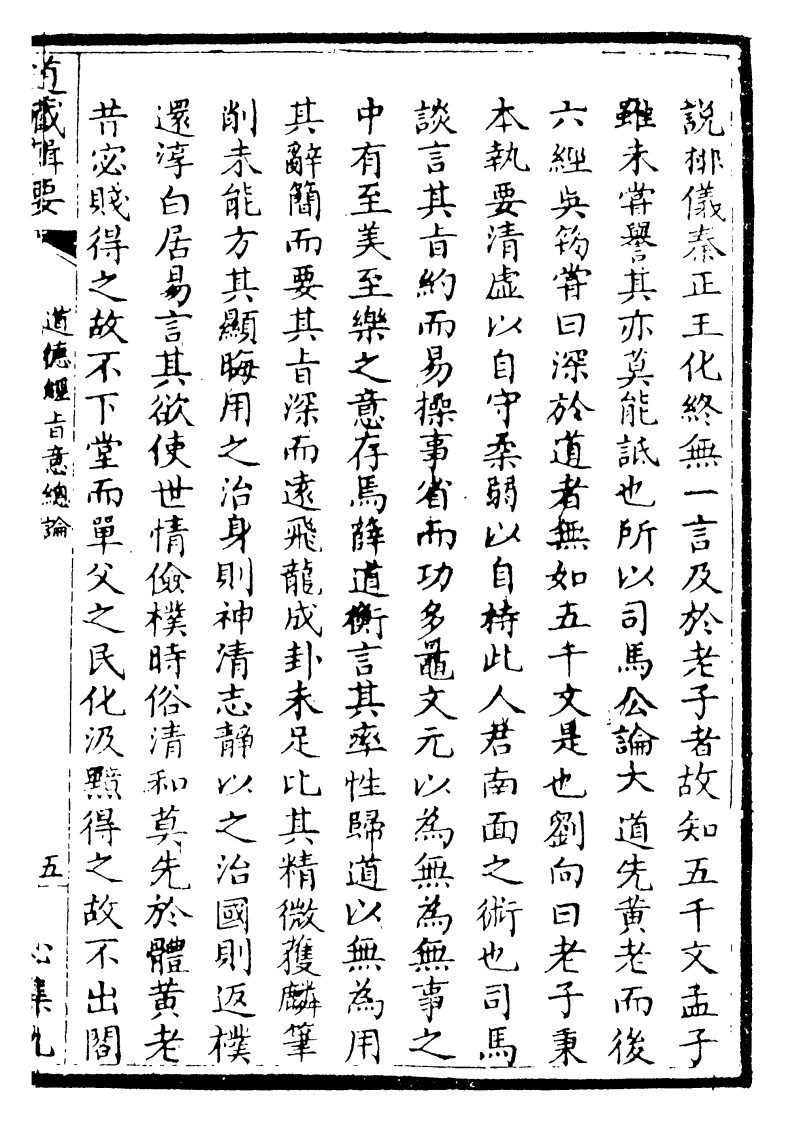 說排儀秦正王化終無一言及於老子者故知五千文孟子
雖未嘗譽其亦莫能詆也所以司馬公論大道先黃老而後
六經吳筠嘗曰深於道者無如五千文是也劉向曰老子秉
本執要清虛以自守柔弱以自持此人君南面之術也司馬
談言其旨約而易操事省而功多鼂文元以為無為無事之
中有至美至樂之意存焉薛道衡言其率性歸道以無為用
其辭簡而要其旨深而遠飛龍成卦未足比其精微獲麟筆
削未能方其顯晦用之治身則神清志靜以之治國則返樸
還淳白居易言其欲使世情儉樸時俗清和莫先於體黃老
昔宓賤得之故不下堂而單父之民化汲黯得之故不出閤
道藏輯要
道德經旨意總論
五
心集九